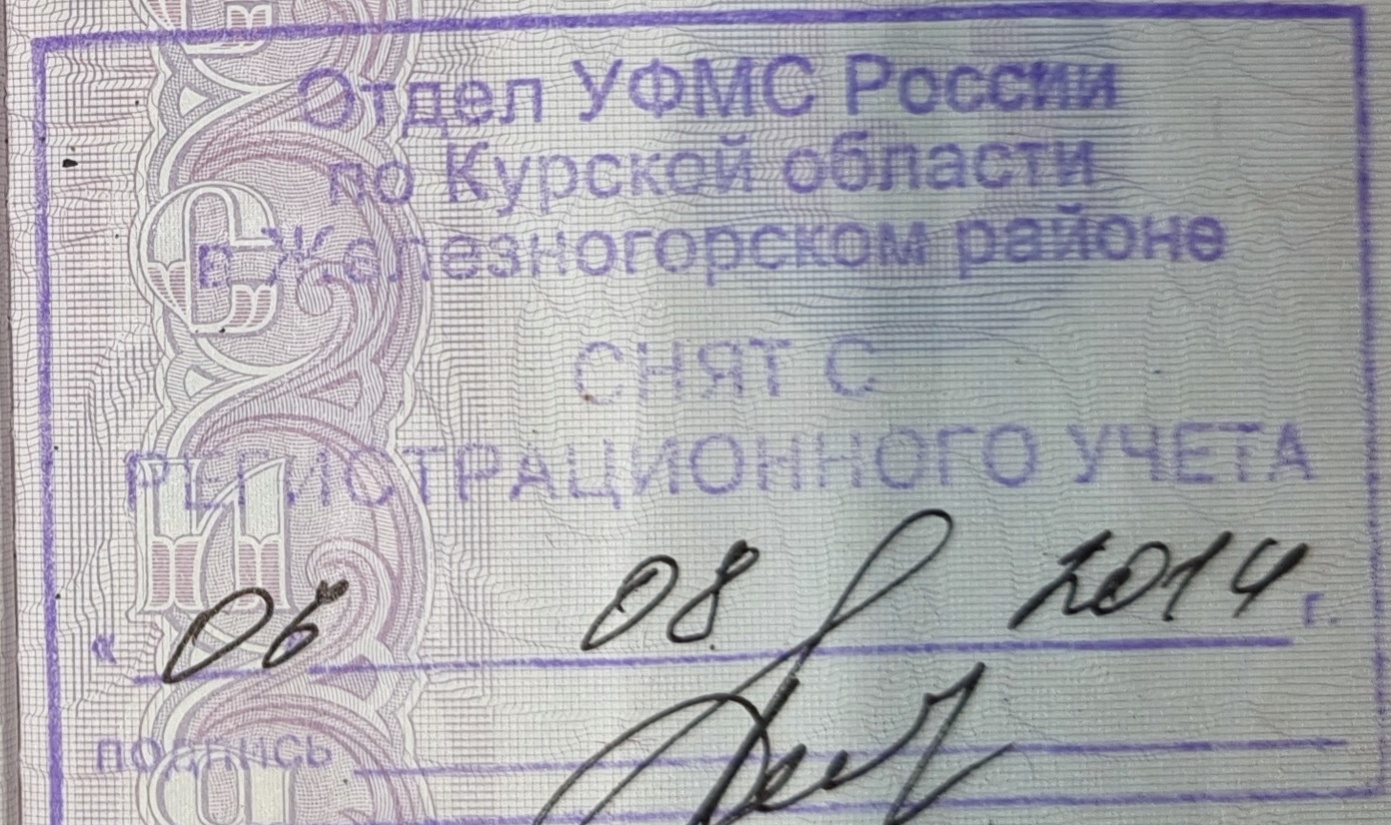 Отдел УФМС России
по Курской области
в Железногорском районе
СНЯТ С
РЕГИСТРАЦИОННОГО УЧЕТА
« 08 2014 г.
подпись